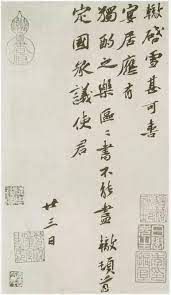 轍啓雪甚可喜
宴居應有
獨酌之樂區〻書不能盡轍頓首
定國承議使君
廿三日